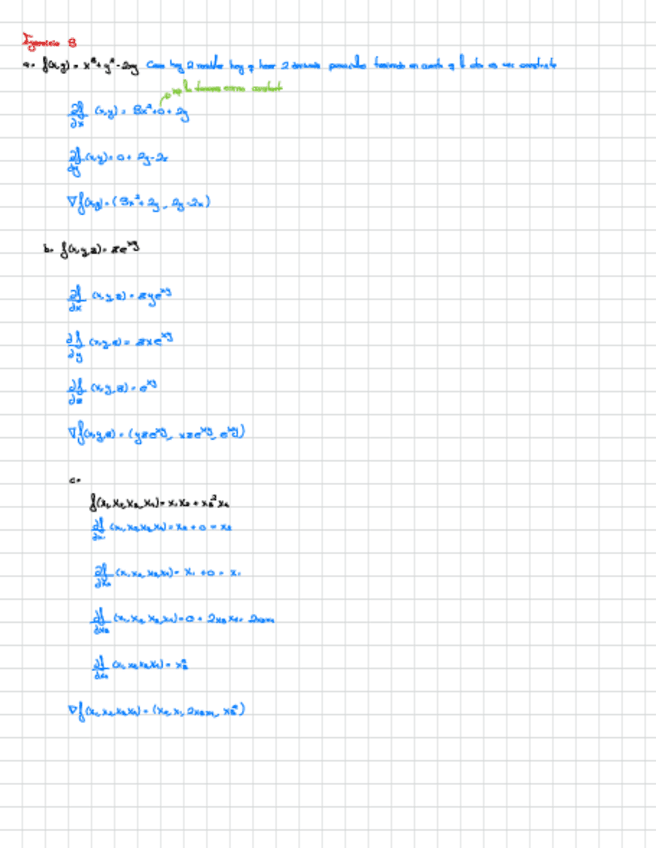 Ejercicio 8
a.- f(x,y) = x³ + y² - 2xy Como hay 2 hay q hacer 2 teniendo en cuenta q la otra es una constante
la como constante
∂f/∂x (x,y) = 3x² + 0 + 2y
∂f/∂y (x,y) = 0 + 2y - 2x
∇f(x,y) = (3x² + 2y, 2y - 2x)
b.- f(x,y,z) = ze^xy
∂f/∂x (x,y,z) = zye^xy
∂f/∂y (x,y,z) = zxe^xy
∂f/∂z (x,y,z) = e^xy
∇f(x,y,z) = (yze^xy, xze^xy, e^xy)
c.-
f(x₁,x₂,x₃,x₄) = x₁x₂ + x₃²x₄
∂f/∂x₁ (x₁,x₂,x₃,x₄) = x₂ + 0 = x₂
∂f/∂x₂ (x₁,x₂,x₃,x₄) = x₁ + 0 = x₁
∂f/∂x₃ (x₁,x₂,x₃,x₄) = 0 + 2x₃x₄ = 2x₃x₄
∂f/∂x₄ (x₁,x₂,x₃,x₄) = x₃²
∇f(x₁,x₂,x₃,x₄) = (x₂, x₁, 2x₃x₄, x₃²)